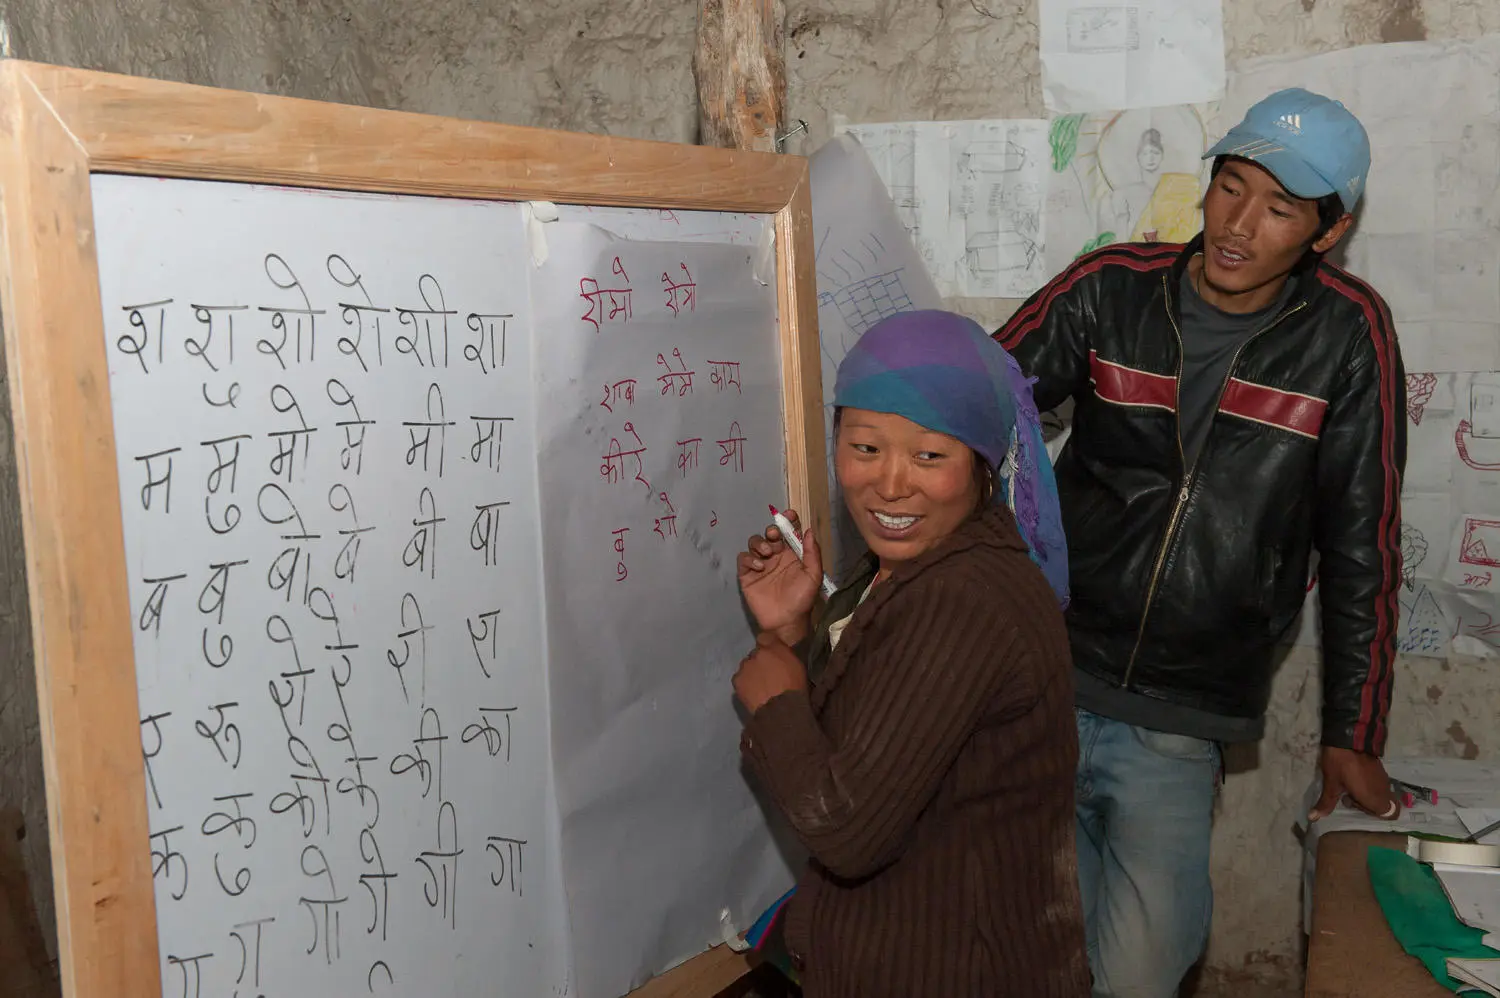 श शु शो शे शी शा
म मु मो मे मी मा
ब बु बो बे बी बा
र रु रो रे री रा
क कु को के की का
ग गु गो गे गी गा
रीमो रोत्रो
शाबा मेमे काग
कीरे का मी
बु शो
adidas